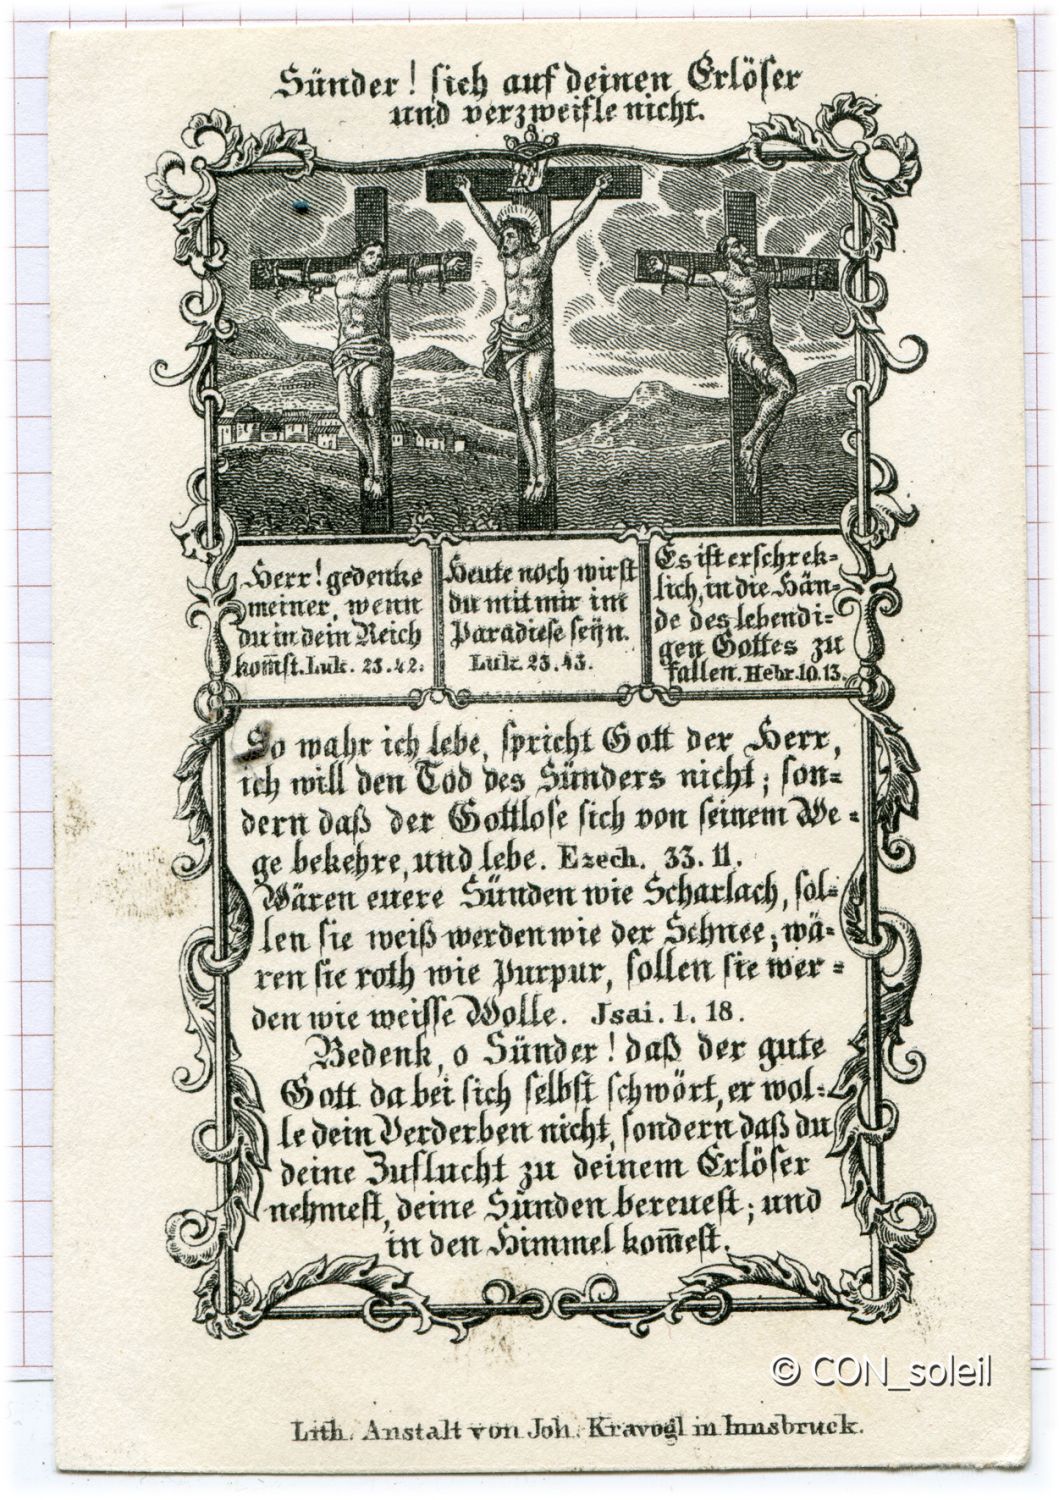 Sünder! sieh auf deinen Erlöser
und verzweifle nicht.
Herr! gedenke
meiner, wenn
du in dein Reich
kom̅st. Luk. 23.42.
Heute noch wirst
du mit mir im
Paradiese seÿn.
Luk. 23.43.
Es ist erschrek=
lich, in die Hän=
de des lebendi=
gen Gottes zu
fallen. Hebr. 10.13.
So wahr ich lebe, spricht Gott der Herr,
ich will den Tod des Sünders nicht; son=
dern daß der Gottlose sich von seinem We=
ge bekehre, und lebe. Ezech. 33. 11.
Wären euere Sünden wie Scharlach, sol=
len sie weiß werden wie der Schnee; wä=
ren sie roth wie Purpur, sollen sie wer=
den wie weisse Wolle. Jsai. 1. 18.
Bedenk, o Sünder! daß der gute
Gott da bei sich selbst schwört, er wol=
le dein Verderben nicht, sondern daß du
deine Zuflucht zu deinem Erlöser
nehmest, deine Sünden bereuest; und
in den Himmel kom̅est.
© CON_soleil
Lith. Anstalt von Joh. Kravogl in Innsbruck.